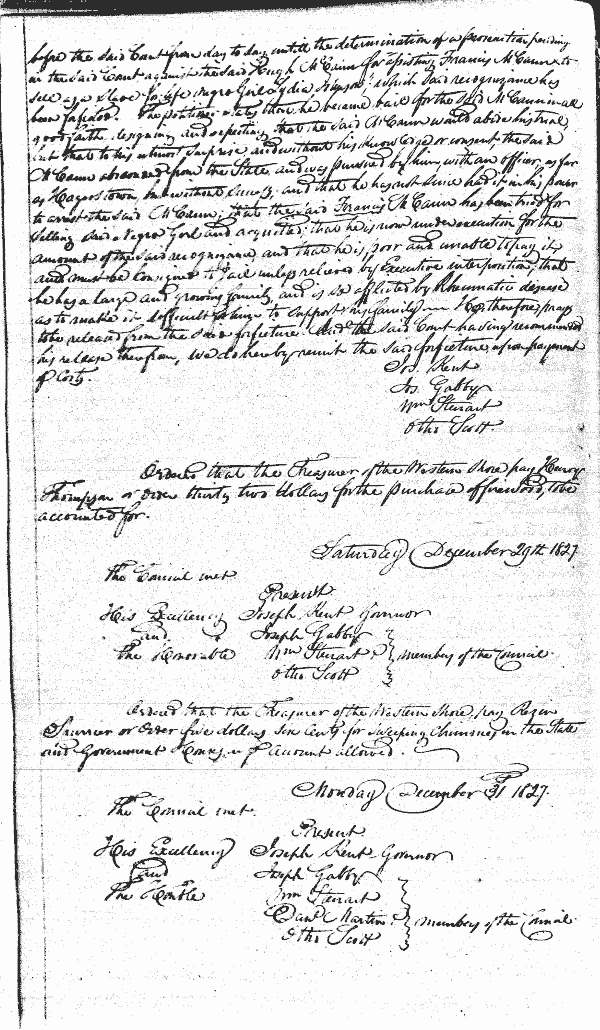 before the said Court from day to day untill the determination of a prosecution pending
in the said Court against the said Hugh McCann for assisting Francis McCann to
sell as a Slave for life Negro Girl Lydia which said recognizance has
been forfeited. The petitioner states that he became bail for the said McCann in all
good faith, designing and expecting that the said McCann would abide his trial,
but that to his utmost surprise and without his knowledge or consent, the said
McCann absconded from the State, and was pursued by him, with an officer, as far
as Hagerstown, but without success; and that he has not since had it in his power
to arrest the said McCann; that the said Francis McCann has been tried for
selling said Negro Girl and acquited; that he is now under execution for the
amount of the said recognizance, and that he is poor and unable to pay it,
and must be consigned to Jail unless relieved by Executive interposition, that
he has a large and growing family, and is so afflicted by Rheumatic disease
as to make it difficult for him to support his family He therefore prays
to be released from the said forfeiture. And the said Court having recommended
his release therefrom, we do hereby remit the said forfeiture, upon payment
of Costs.
Jos. Kent
Jos. Gabby
Wm Steuart
Otho Scott
Ordered that the Treasurer of the Western Shore pay Henry
Thompson or order thirty two dollars for the purchase of firewood, to be
accounted for.
Saturday December 29th 1827
The Council met
Present
His Excellency Joseph Kent Governor
and Joseph Gabby
The Honorable Wm Steuart members of the Council
Otho Scott
Ordered that the Treasurer of the Western Shore pay Rezin
Spurrier or order five dollars six Cents for sweeping Chimnies in the State
and Government Houses, as p Account allowed.
Monday December 31 1827.
The Council met.
Present
His Excellency Joseph Kent Governor
and Joseph Gabby
The Honble Wm Steuart
Danl Martin members of the Council
Otho Scott